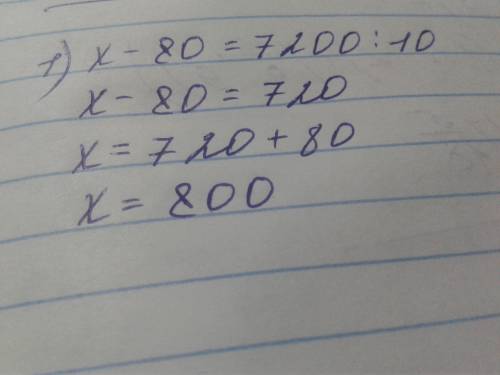 1) x - 80 = 7200 : 10
x - 80 = 720
x = 720 + 80
x = 800